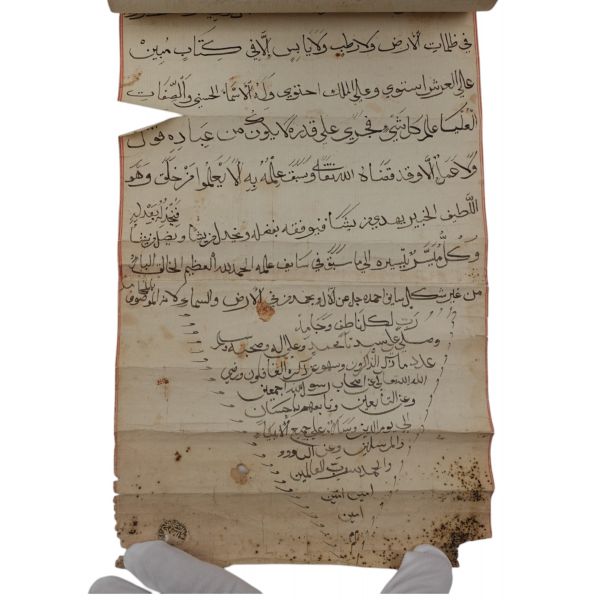 في ظلمات الارض ولا رطب ولا يابس إلا في كتاب مبين
على العرش استوى وعلى الملك احتوى وله الاسماء الحسنى والصفات
العليا عالم كل شيء ومجري على قدره لا يكون من عباده قول
ولا عمل إلا وقد قضاه الله تعالى وسبق علمه به الا يعلم من خلق وهو
اللطيف الخبير يهدي من يشاء فيوفقه بفضله ويخذل من يشاء ويضل من يشاء
فيخذله بعدله
وكل ميسر بتيسيره الى ما سبق في سابق علمه الحمد لله العظيم الخالق البارئ
من غير شكل سابق احمده جل عن وبحمده في الارض والسماء
رب لكل ناطق وجامد
وصلى على سيدنا محمد وعلى اله وصحبه وسلم
عدد ما ذكر الذاكرون وسهو عن ذكره الغافلون ورضي
الله تعالى عن اصحاب رسول الله اجمعين
وعن التابعين وتابعهم باحسان
الى يوم الدين وسلام على جميع الانبياء
والمرسلين
والحمد لله رب العالمين
امين امين
امين